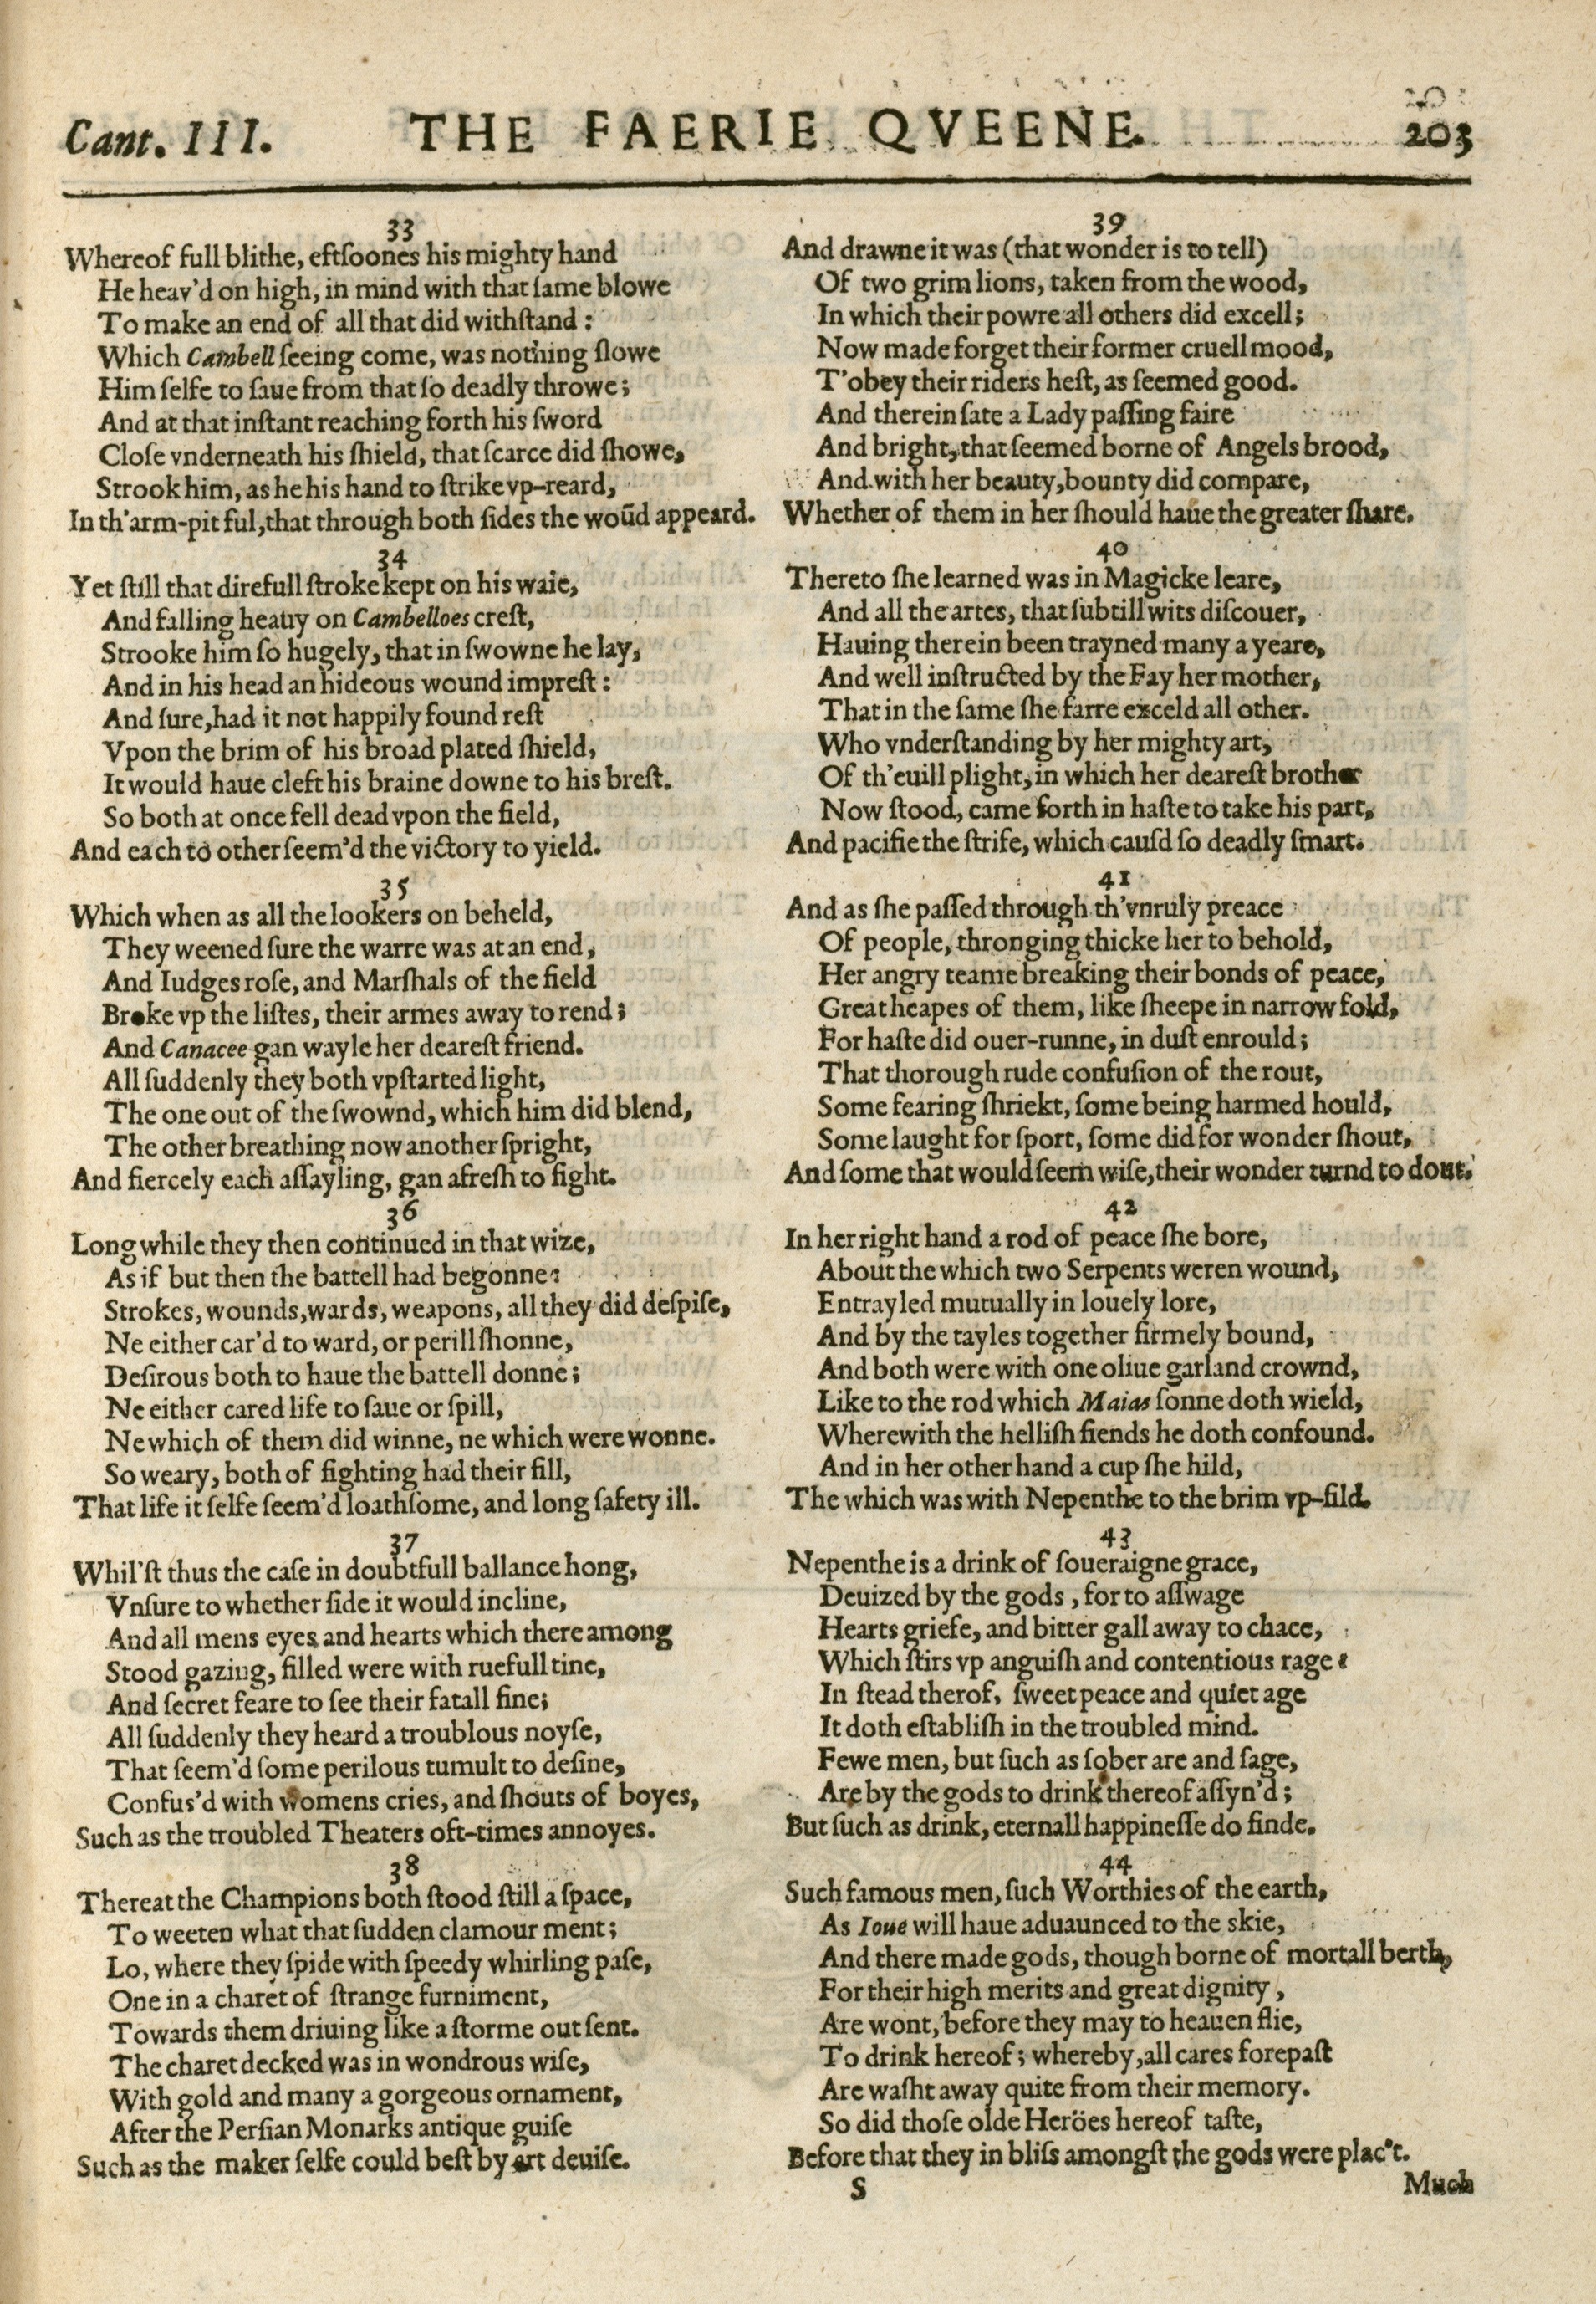 Cant. III. THE FAERIE QVEENE. 203
33
Whereof full blithe, eftſoones his mighty hand
He heav'd on high, in mind with that ſame blowe
To make an end of all that did withſtand:
Which Cambell ſeeing come, was nothing ſlowe
Him ſelfe to ſaue from that ſo deadly throwe;
And at that inſtant reaching forth his ſword
Cloſe vnderneath his ſhield, that ſcarce did ſhowe,
Strook him, as he his hand to ſtrike vp-reard,
In th'arm-pit ful, that through both ſides the woūd appeard.
34
Yet ſtill that direfull ſtroke kept on his waie,
And falling heauy on Cambelloes creſt,
Strooke him ſo hugely, that in ſwowne he lay,
And in his head an hideous wound impreſt:
And ſure, had it not happily found reſt
Vpon the brim of his broad plated ſhield,
It would haue cleft his braine downe to his breſt.
So both at once fell dead vpon the field,
And each to other ſeem'd the victory to yield.
35
Which when as all the lookers on beheld,
They weened ſure the warre was at an end,
And Iudges roſe, and Marſhals of the field
Broke vp the liſtes, their armes away to rend;
And Canacee gan wayle her deareſt friend.
All ſuddenly they both vpſtarted light,
The one out of the ſwownd, which him did blend,
The other breathing now another ſpright,
And fiercely each aſſayling, gan afreſh to fight.
36
Long while they then continued in that wize,
As if but then the battell had begonne:
Strokes, wounds, wards, weapons, all they did deſpiſe,
Ne either car'd to ward, or perill ſhonne,
Deſirous both to haue the battell donne;
Ne either cared life to ſaue or ſpill,
Ne which of them did winne, ne which were wonne.
So weary, both of fighting had their fill,
That life it ſelfe ſeem'd loathſome, and long ſafety ill.
37
Whil'ſt thus the caſe in doubtfull ballance hong,
Vnſure to whether ſide it would incline,
And all mens eyes and hearts which there among
Stood gazing, filled were with ruefull tine,
And ſecret feare to ſee their fatall fine;
All ſuddenly they heard a troublous noyſe,
That ſeem'd ſome perilous tumult to deſine,
Confus'd with womens cries, and ſhouts of boyes,
Such as the troubled Theaters oft-times annoyes.
38
Thereat the Champions both ſtood ſtill a ſpace,
To weeten what that ſudden clamour ment;
Lo, where they ſpide with ſpeedy whirling paſe,
One in a charet of ſtrange furniment,
Towards them driuing like a ſtorme out ſent.
The charet decked was in wondrous wiſe,
With gold and many a gorgeous ornament,
After the Perſian Monarks antique guiſe
Such as the maker ſelfe could beſt by art deuiſe.
39
And drawne it was (that wonder is to tell)
Of two grim lions, taken from the wood,
In which their powre all others did excell;
Now made forget their former cruell mood,
T'obey their riders heſt, as ſeemed good.
And therein ſate a Lady paſſing faire
And bright, that ſeemed borne of Angels brood,
And with her beauty, bounty did compare,
Whether of them in her ſhould haue the greater ſhare.
40
Thereto ſhe learned was in Magicke leare,
And all the artes, that ſubtill wits diſcouer,
Hauing therein been trayned many a yeare,
And well inſtructed by the Fay her mother,
That in the ſame ſhe farre exceld all other.
Who vnderſtanding by her mighty art,
Of th'euill plight, in which her deareſt brother
Now ſtood, came forth in haſte to take his part,
And pacifie the ſtrife, which cauſd ſo deadly ſmart.
41
And as ſhe paſſed through th'vnruly preace
Of people, thronging thicke her to behold,
Her angry teame breaking their bonds of peace,
Great heapes of them, like ſheepe in narrow fold,
For haſte did ouer-runne, in duſt enrould;
That thorough rude confuſion of the rout,
Some fearing ſhriekt, ſome being harmed hould,
Some laught for ſport, ſome did for wonder ſhout,
And ſome that would ſeem wiſe, their wonder turnd to dout.
42
In her right hand a rod of peace ſhe bore,
About the which two Serpents weren wound,
Entrayled mutually in louely lore,
And by the tayles together firmely bound,
And both were with one oliue garland crownd,
Like to the rod which Maias ſonne doth wield,
Wherewith the helliſh fiends he doth confound.
And in her other hand a cup ſhe hild,
The which was with Nepenthe to the brim vp-fild.
43
Nepenthe is a drink of ſoueraigne grace,
Deuized by the gods, for to aſſwage
Hearts griefe, and bitter gall away to chace,
Which ſtirs vp anguiſh and contentious rage:
In ſtead therof, ſweet peace and quiet age
It doth eſtabliſh in the troubled mind.
Fewe men, but ſuch as ſober are and ſage,
Are by the gods to drink thereof aſſyn'd;
But ſuch as drink, eternall happineſſe do finde.
44
Such famous men, ſuch Worthies of the earth,
As Ioue will haue aduaunced to the skie,
And there made gods, though borne of mortall berth,
For their high merits and great dignity,
Are wont, before they may to heauen flie,
To drink hereof; whereby, all cares forepaſt
Are waſht away quite from their memory.
So did thoſe olde Heröes hereof taſte,
Before that they in bliſs amongſt the gods were plac't.
S Much